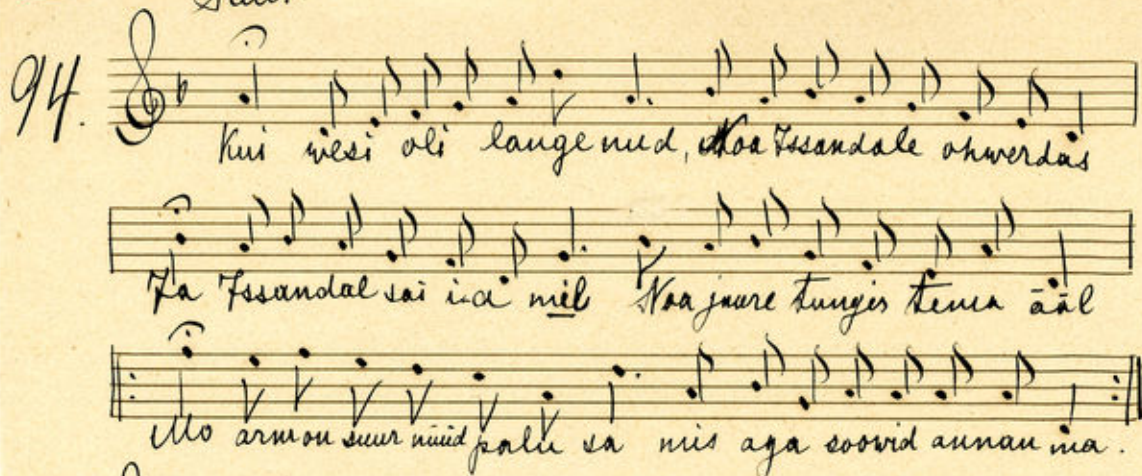 94.
Kui wesi oli langenud, Noa Issandale ohwerdas
Ja Issandal sai i.a mēl Noa juure tungis tema ääl
Mo arm on suur nüüd palu sa mis aga soowid annan ma.